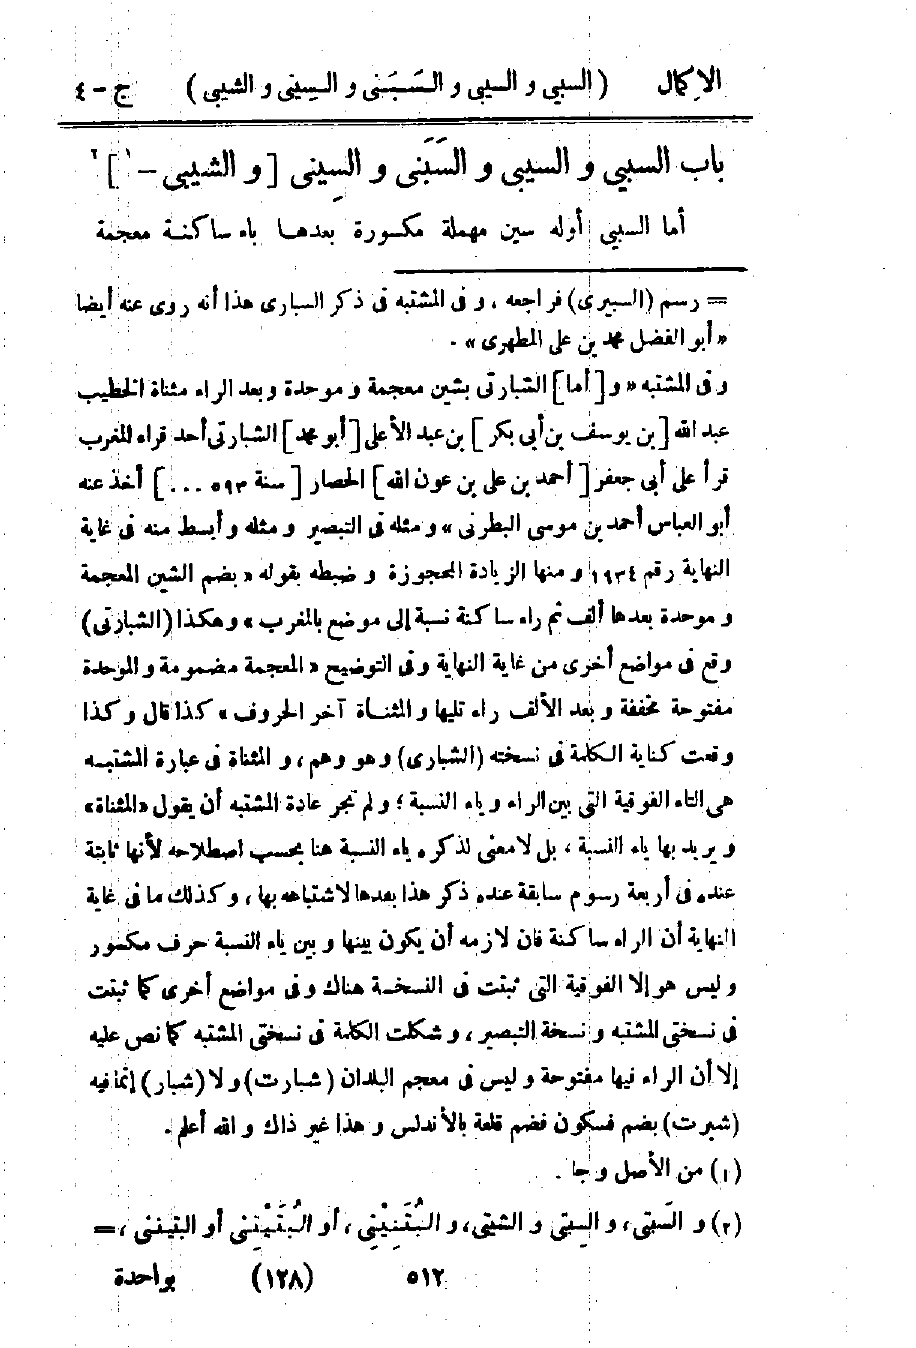 الإكمال ( السبي و السيبى و السَبَنى و السِينى و الشيبى ) ج - ٤
باب السبي و السيبى و السَبَنى و السِينى [ و الشيبى - ١ ] ٢
أما السبي أوله سين مهملة مكسورة بعدها باء ساكنة معجمة
= رسم (السبيرى) فراجعه ، و فى المشتبه فى ذكر السبارى هذا أنه روى عنه أيضا
« أبو الفضل محمد بن على المطهرى » .
و فى المشتبه « و [ أما ] الشبارتى بشين معجمة و موحدة و بعد الراء مثناة الخطيب
عبد الله [ بن يوسف بن أبى بكر ] بن عبد الأعلى [ أبو محمد ] الشبارتى أحد قراء المغرب
قرأ على أبى جعفر [ أحمد بن على بن عون الله ] الحصار [ سنة ٥٩٣ ... ] أخذ عنه
أبو العباس أحمد بن موسى البطرنى » و مثله فى التبصير و مثله و أبسط منه فى غاية
النهاية رقم ١٩٣٤ و منها الزيادة المحجوزة و ضبطه بقوله « بضم الشين المعجمة
و موحدة بعدها ألف ثم راء ساكنة نسبة إلى موضع بالمغرب » و هكذا (الشبارتى)
وقع فى مواضع أخرى من غاية النهاية و فى التوضيح « المعجمة مضمومة و الموحدة
مفتوحة مخففة و بعد الألف راء تليها و المثناة آخر الحروف » كذا قال و كذا
وقعت كتابة الكلمة فى نسخته (الشبارى) و هو وهم، و المثناة فى عبارة المشتبه
هى التاء الفوقية التى بين الراء و ياء النسبة ؛ و لم تجر عادة المشتبه أن يقول «المثناة»
و يريد بها ياء النسبة ، بل لا معنى لذكره ياء النسبة هنا بحسب اصطلاحه لأنها ثابتة
عنده فى أربعة رسوم سابقة عنده ذكر هذا بعدها لاشتباهه بها ، و كذلك ما فى غاية
النهاية أن الراء ساكنة فان لازمه أن يكون بينها و بين ياء النسبة حرف مكسور
و ليس هو إلا الفوقية التى ثبتت فى النسخة هناك و فى مواضع أخرى كما ثبتت
فى نسختى المشتبه و نسخة التبصير ، و شكلت الكلمة فى نسختى المشتبه كما نص عليه
إلا أن الراء فيها مفتوحة و ليس فى معجم البلدان (شبارت) و لا (شبار) إنما فيه
(شبرت) بضم فسكون فضم قلعة بالأندلس و هذا غير ذاك و الله أعلم .
(١) من الأصل و جا .
(٢) و السَبتى، و السِبتى و الشيتى، و البُتَنِيْنِى ، أو البُتَيْنِنى أو البتينى ، =
٥١٢ (١٢٨) بواحدة